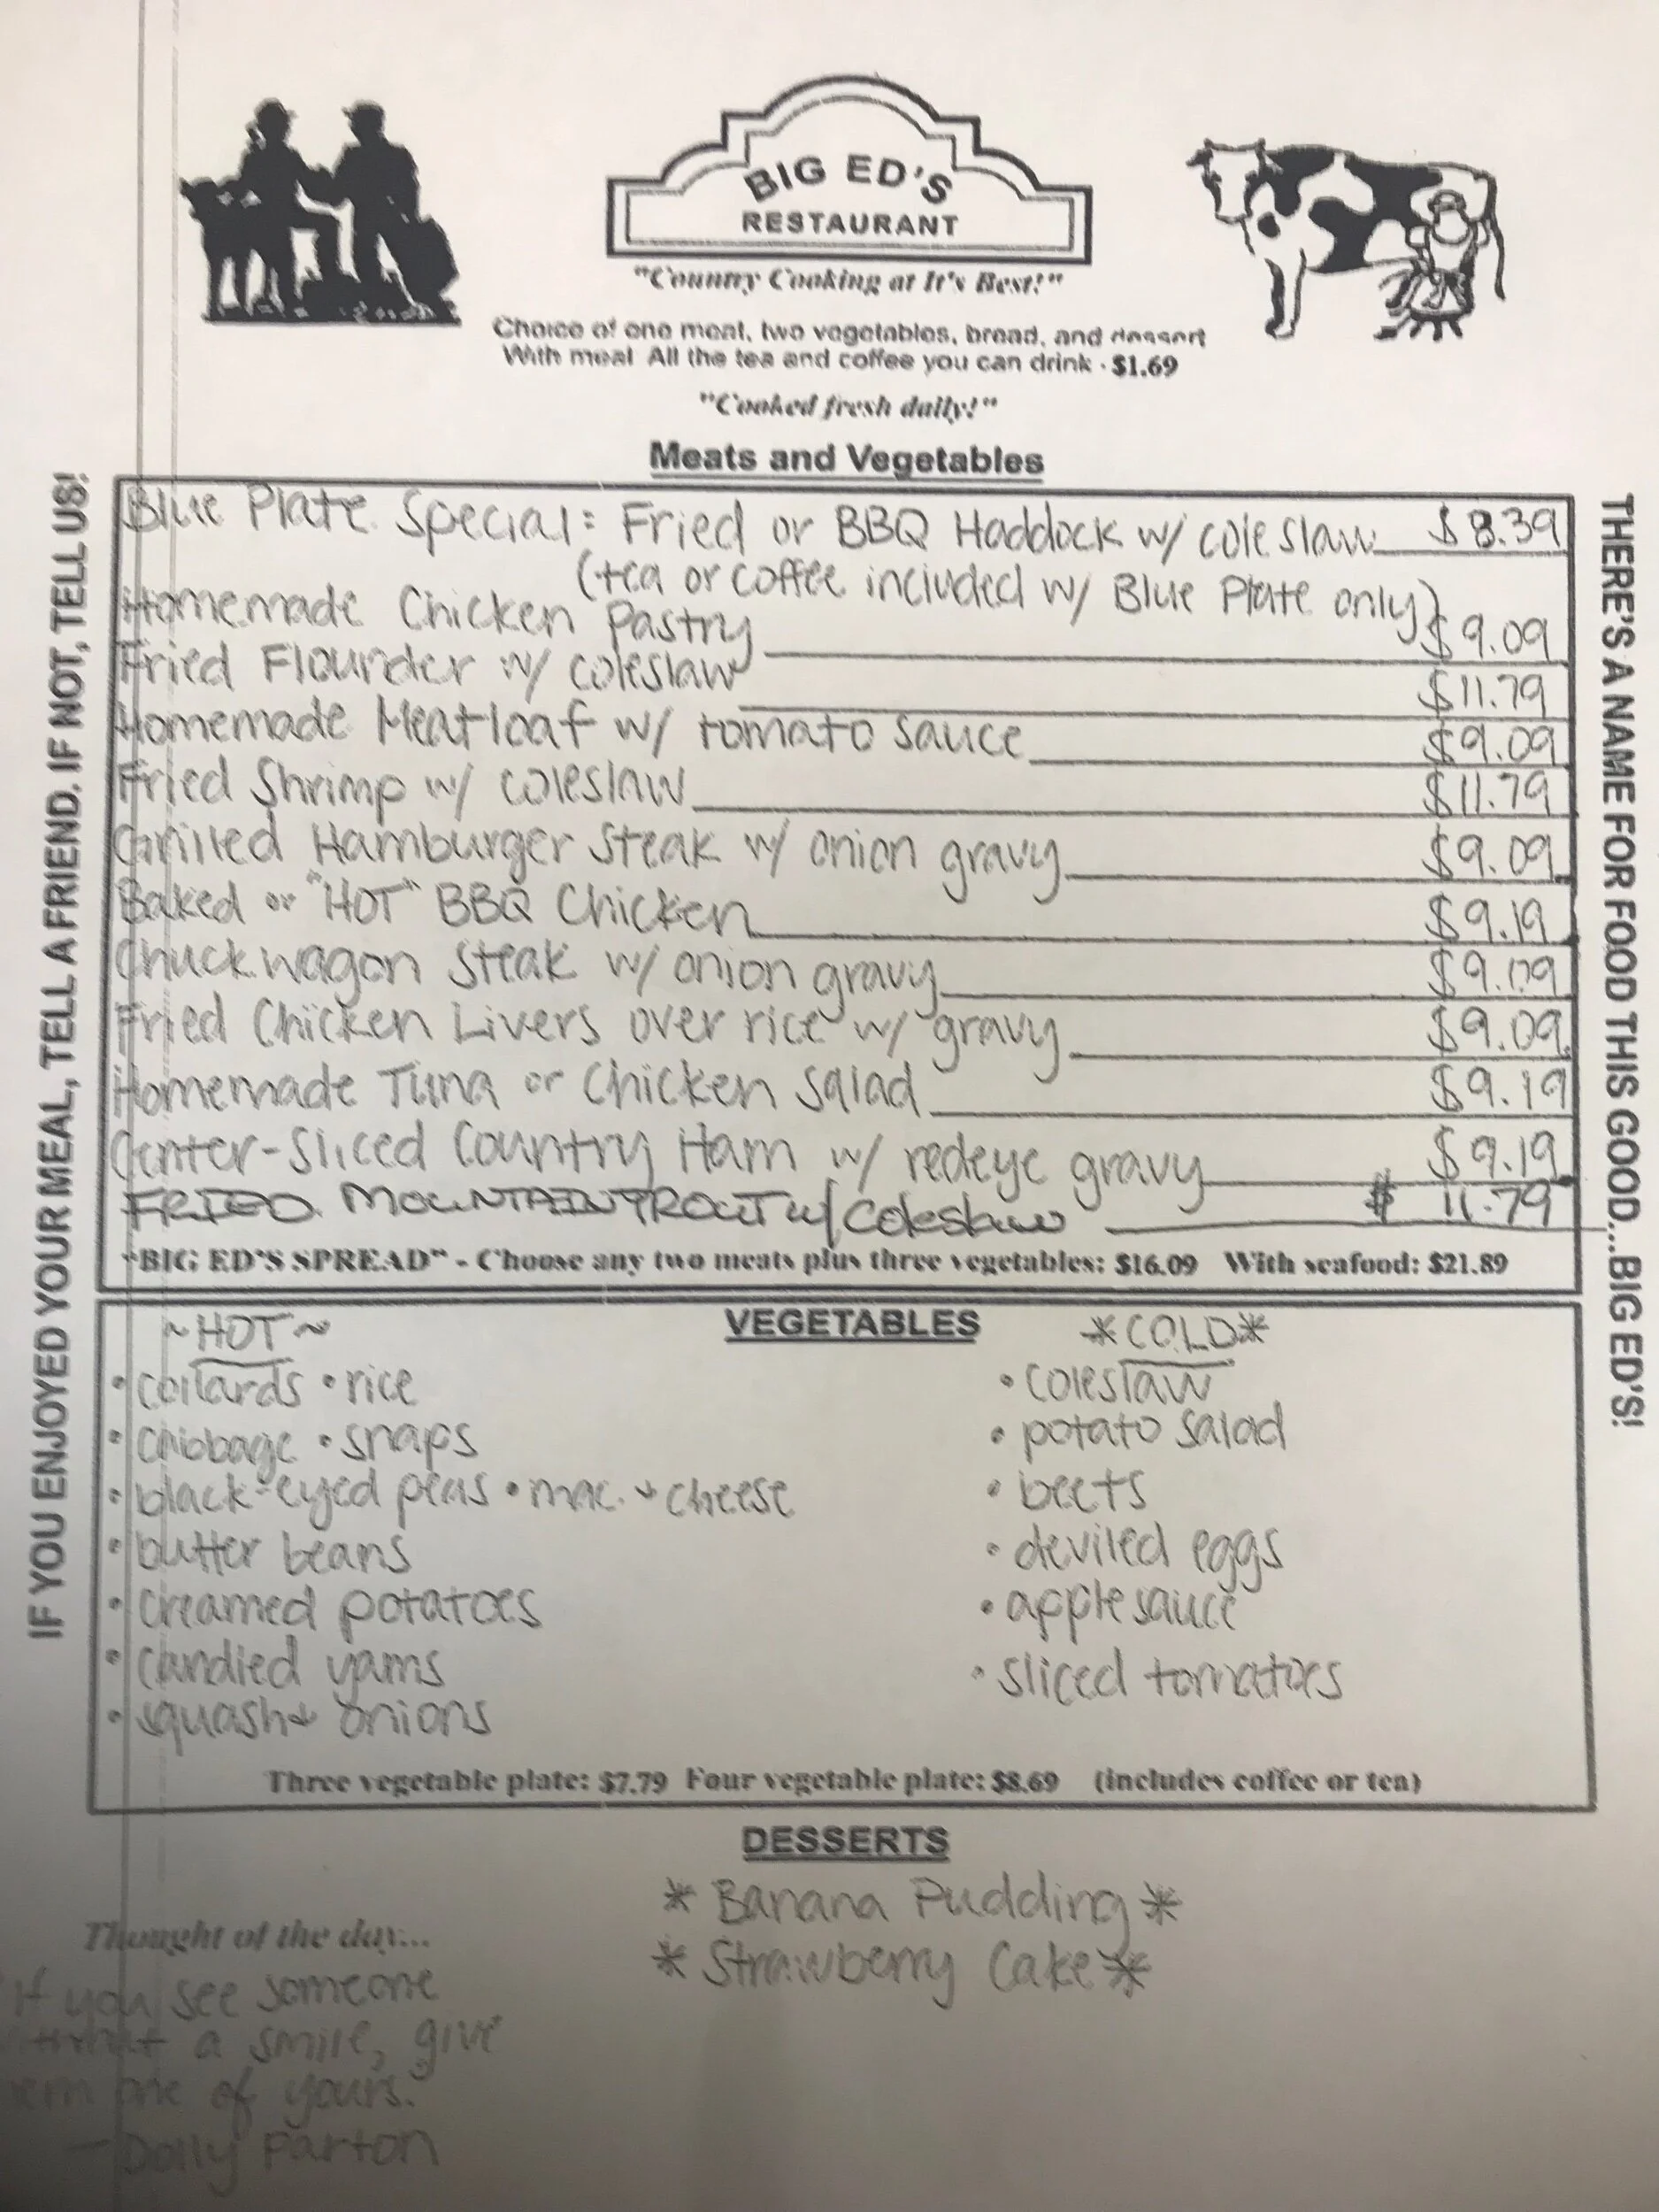 BIG ED'S
RESTAURANT
"Country Cooking at It's Best!"
Choice of one meat, two vegetables, bread, and dessert
With meal All the tea and coffee you can drink - $1.69
"Cooked fresh daily!"
Meats and Vegetables
Blue Plate Special: Fried or BBQ Haddock w/ coleslaw $8.39
(tea or coffee included w/ Blue Plate only)
Homemade Chicken Pastry $9.09
Fried Flounder w/ coleslaw $11.79
Homemade Meatloaf w/ tomato sauce $9.09
Fried Shrimp w/ coleslaw $11.79
Grilled Hamburger Steak w/ onion gravy $9.09
Baked or "HOT" BBQ Chicken $9.19
Chuckwagon Steak w/ onion gravy $9.09
Fried Chicken Livers over rice w/ gravy $9.09
Homemade Tuna or Chicken Salad $9.19
Center-Sliced Country Ham w/ redeye gravy $9.19
FRIED MOUNTAIN TROUT w/ Coleslaw $11.79
"BIG ED'S SPREAD" - Choose any two meats plus three vegetables: $16.09 With seafood: $21.89
VEGETABLES
~HOT~
• collards • rice
• cabbage • snaps
• black-eyed peas • mac. & cheese
• butter beans
• creamed potatoes
• candied yams
• squash & onions
*COLD*
• coleslaw
• potato salad
• beets
• deviled eggs
• applesauce
• sliced tomatoes
Three vegetable plate: $7.79 Four vegetable plate: $8.69 (includes coffee or tea)
DESSERTS
* Banana Pudding *
* Strawberry Cake *
Thought of the day...
"If you see someone
without a smile, give
them one of yours."
- Dolly Parton
IF YOU ENJOYED YOUR MEAL, TELL A FRIEND. IF NOT, TELL US!
THERE'S A NAME FOR FOOD THIS GOOD...BIG ED'S!